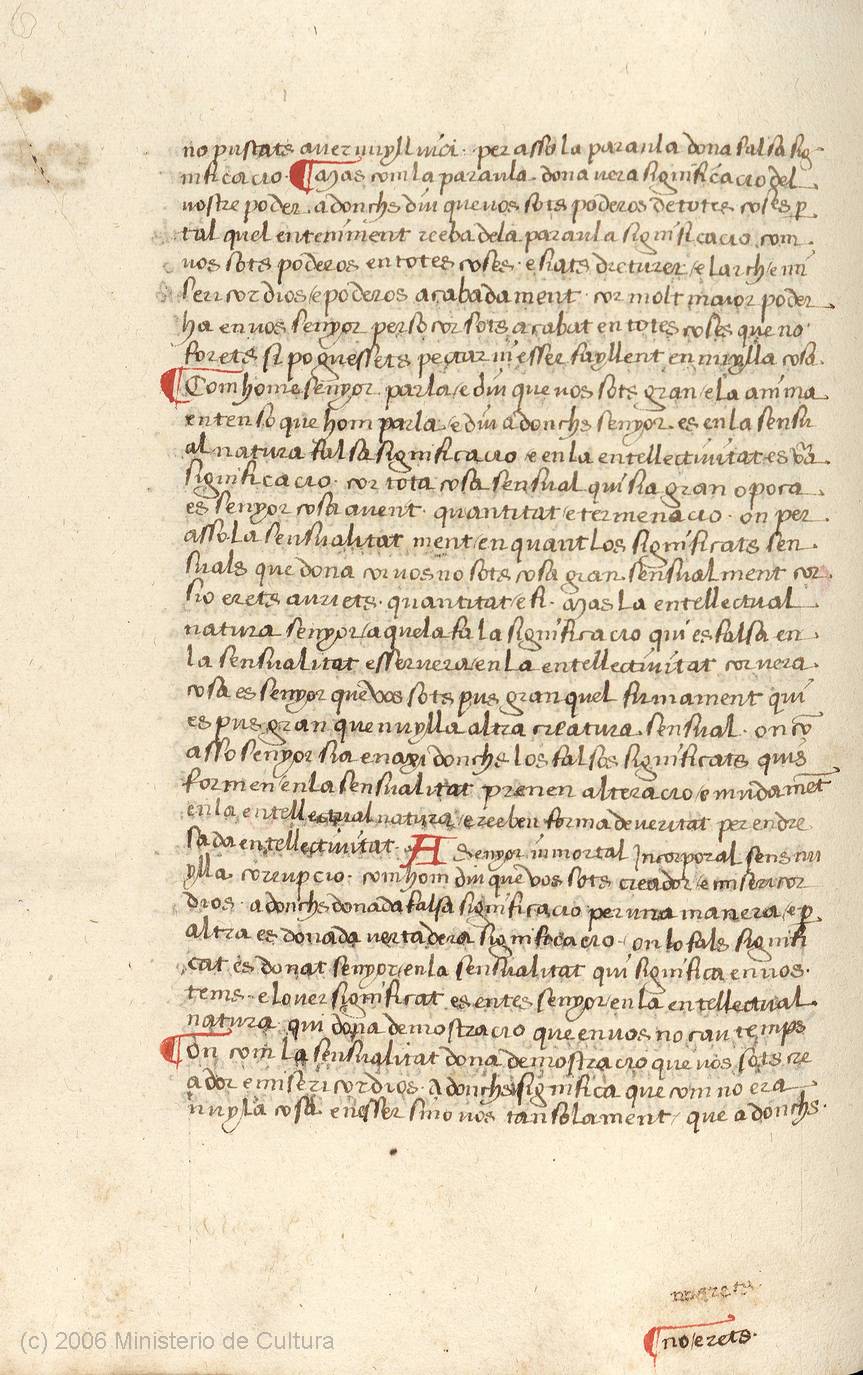 no puscats aver nuyll vici · per asso la paraula dona falsa sig-
nificacio · ¶ Mas com la paraula · dona vera significacio del
vostre poder · adonchs diu que vos sots poderos de totes coses p
tal quel enteniment reeba dela paraula significacio com ·
vos sots poderos en totes coses · e siats dreturer / e larch / e mi
sericordios / e poderos acabadament · cor molt maior poder
ha en vos senyor perso cor sots acabat en totes coses que no
forets si poguessets peccar ni esser fayllent en nuylla cosa.
¶ Com home senyor parla / e diu que vos sots gran / e la anima
enten so que hom parla / e diu adonchs senyor · es en la sensu
al natura falsa significacio e en la entellectivitat es va
significacio · cor tota cosa sensual qui sia gran o poca ·
es senyor cosa avent · quantitat / e termenacio · on per
asso la sensualitat ment / en quant los significats sen
suals que dona cor vos no sots cosa gran · sensualment cor
sio erets auriets · quantitat / e fi · Mas la entellectual
natura senyor / aquela fa la significacio qui es falsa en
la sensualitat esser vera / en la entellectivitat cor vera
cosa es senyor que vos sots pus gran quel firmament qui
es pus gran que nuylla altra creatura · sensual · on co
asso senyor sia enaxi donchs los falses significats quis
formen en la sensualitat prenen alteracio / e mudamet
en la entellectual natura / e reeben forma de veritat per endre
sada entellectivitat · A Senyor inmortal Incorporal sens nu
ylla corrupcio · com hom diu que vos sots creador / e misericor
dios · adonchs donada falsa significacio per una manera / e p
altra es donada vertadera significacio · on lo fals signifi
cat es donat senyor / en la sensualitat qui significa en vos ·
tems · e lo ver significat es entes senyor / en la entellectual ·
natura qui dona demostracio que en vos no cau temps
¶ On com la sensualitat dona demostracio que vos sots cre
ador e misericordios · Adonchs significa que com no era
nuyla cosa · en esser sino vos tansolament / que adonchs ·
no erets
¶ no / erets ·
(c) 2006 Ministerio de Cultura